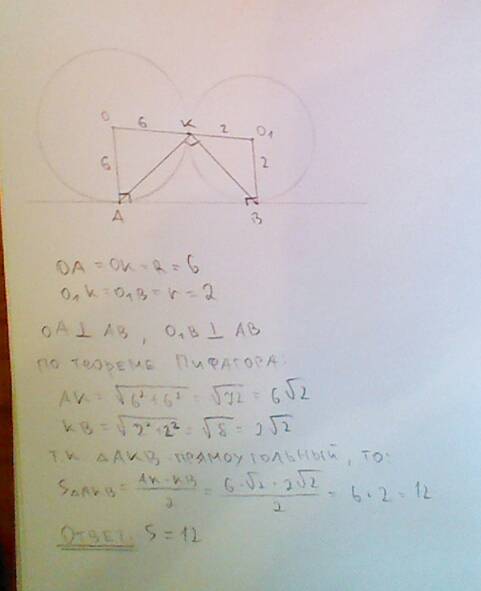 O 6 K 2 O₁
6 2
A B
OA = OK = R = 6
O₁K = O₁B = r = 2
OA ⊥ AB , O₁B ⊥ AB
ПО ТЕОРЕМЕ ПИФАГОРА:
AK = √(6² + 6²) = √72 = 6√2
KB = √(2² + 2²) = √8 = 2√2
Т.К. △AKB - ПРЯМОУГОЛЬНЫЙ, ТО:
S△AKB = AK · KB / 2 = 6 · √2 · 2√2 / 2 = 6 · 2 = 12
ОТВЕТ: S = 12